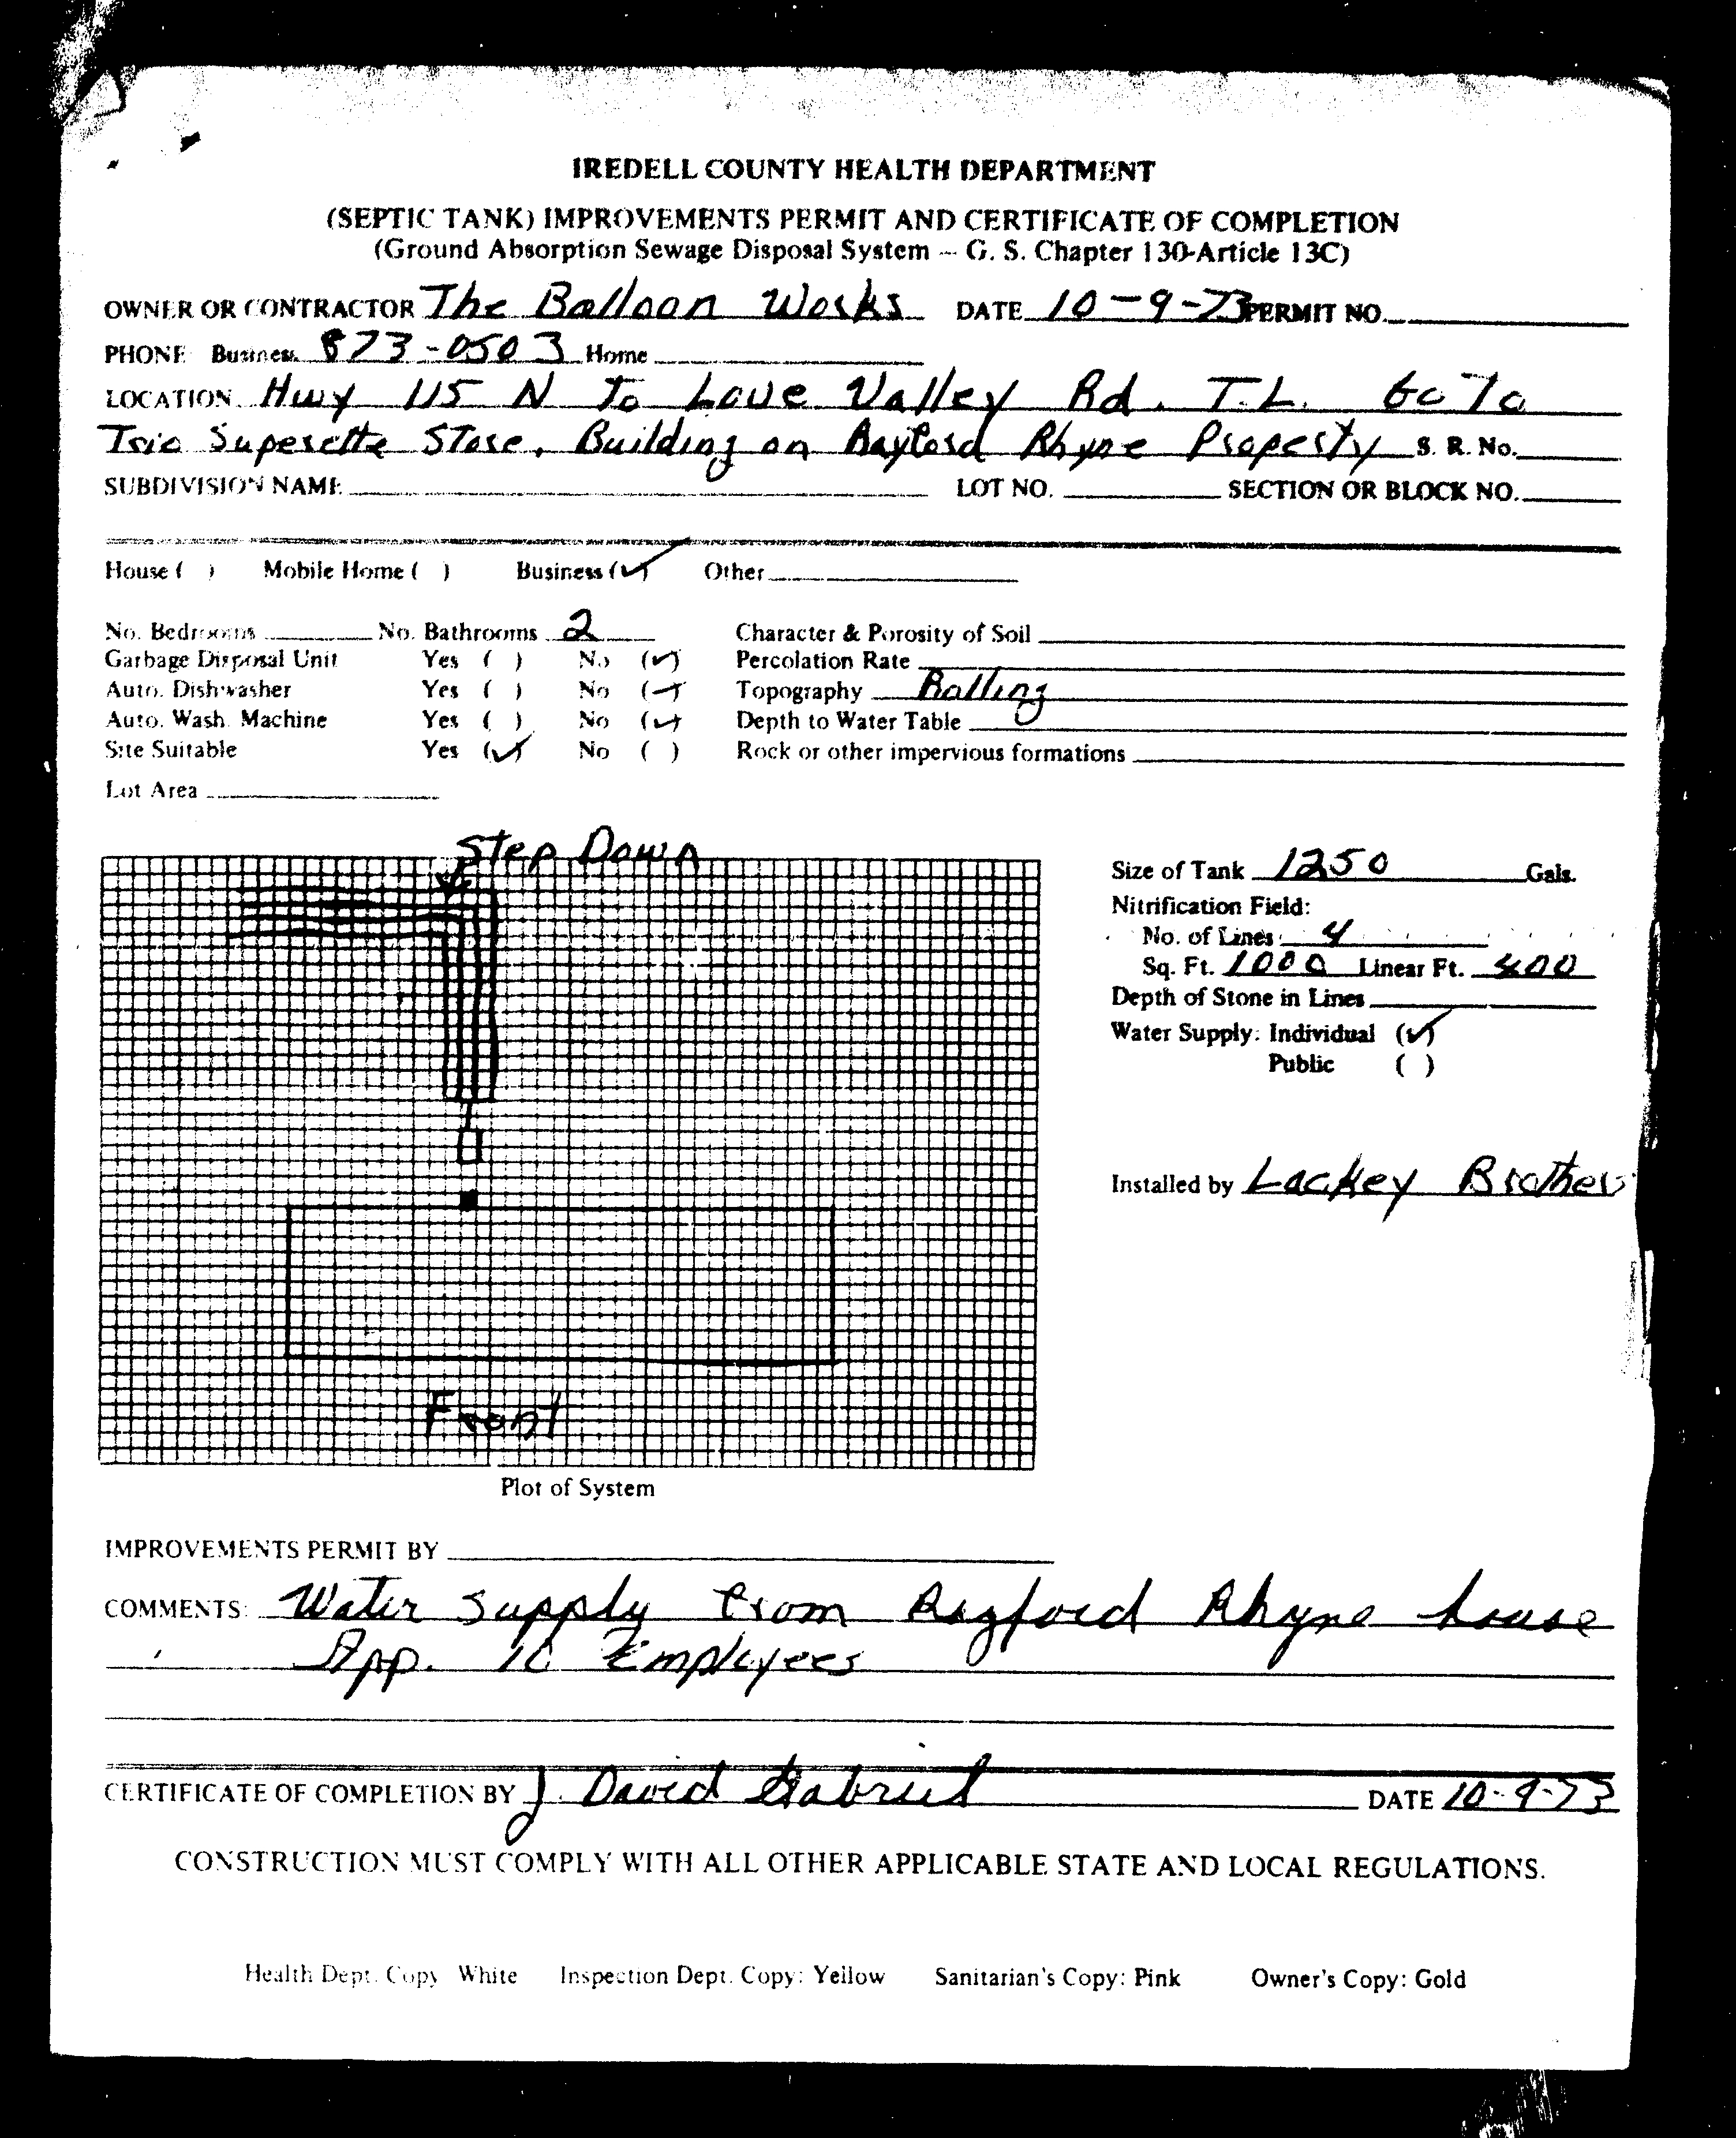 IREDELL COUNTY HEALTH DEPARTMENT
(SEPTIC TANK) IMPROVEMENTS PERMIT AND CERTIFICATE OF COMPLETION
(Ground Absorption Sewage Disposal System -- G. S. Chapter 130-Article 13C)
OWNER OR CONTRACTOR The Balloon Works DATE 10-9-73 PERMIT NO.
PHONE Business 873-0503 Home
LOCATION Hwy 115 N To Love Valley Rd. T.L. Go To
Trio Superette Store. Building on Rayford Rhyne Property S. R. No.
SUBDIVISION NAME LOT NO. SECTION OR BLOCK NO.
House ( ) Mobile Home ( ) Business (✓) Other
No. Bedrooms No. Bathrooms 2 Character & Porosity of Soil
Garbage Disposal Unit Yes ( ) No (✓) Percolation Rate
Auto. Dishwasher Yes ( ) No (✓) Topography Rolling
Auto. Wash. Machine Yes ( ) No (✓) Depth to Water Table
Site Suitable Yes (✓) No ( ) Rock or other impervious formations
Lot Area
Step Down
Size of Tank 1250 Gals.
Nitrification Field:
No. of Lines 4
Sq. Ft. 1000 Linear Ft. 400
Depth of Stone in Lines
Water Supply: Individual (✓)
Public ( )
Installed by Lackey Brothers
Front
Plot of System
IMPROVEMENTS PERMIT BY
COMMENTS: Water supply from Rayford Rhyne house
App. 10 Employees
CERTIFICATE OF COMPLETION BY J. David Gabriel DATE 10-9-73
CONSTRUCTION MUST COMPLY WITH ALL OTHER APPLICABLE STATE AND LOCAL REGULATIONS.
Health Dept. Copy White Inspection Dept. Copy: Yellow Sanitarian's Copy: Pink Owner's Copy: Gold